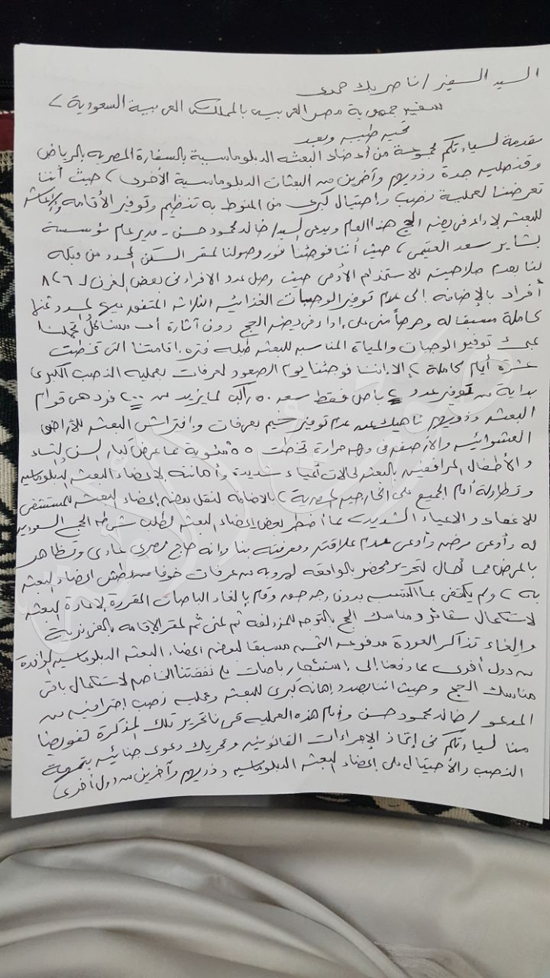 السيد السفير / ناصر بك حمدي
سفير جمهورية مصر العربية بالمملكة العربية السعودية
تحية طيبة وبعد
مقدمة لسيادتكم مجموعة من أعضاء البعثة الدبلوماسية بالسفارة المصرية بالرياض
وقنصلية جدة وذويهم وآخرين من البعثات الدبلوماسية الأخرى، حيث أننا
تعرضنا لعملية نصب واحتيال كبرى من المنوط به تنظيم وتوفير الأقامة والاعاشة
للبعثة لاداء فريضة الحج هذا العام ويدعى السيد/ خالد محمود حسن - مدير عام مؤسسة
بشاير سعد العتيبي، حيث أننا فوجئنا فور وصولنا لمقر السكن المحدد من قبله
لنا بعدم صلاحيته للاستخدام الأدمى حيث وصل عدد الافراد في بعض الغرف لـ ٨،٦
أفراد بالإضافة إلى عدم توفير الوجبات الغذائية الثلاثة المتفق عليها المسدد ثمنها
كاملة مسبقا له وحرصاً منا على اداء فريضة الحج دون آثارة أى مشاكل تحملنا
عبء توفير الوجبات والمياة المناسبة للبعثة طيلة فترة إقامتنا التى تخطت
عشرة أيام كاملة، إلا اننا فوجئنا يوم الصعود لعرفات بعملية النصب الكبرى
بداية من توفير عدد ٢ باص فقط سعة ٥٠ راكب لما يزيد عن ٢٠٠ فرد هى قوام
البعثة وذويهم ناهيك عن عدم توفير مخيم بعرفات وافتراش البعثة للأراضى
العشوائية والأرصفة فى درجة حرارة تخطت ٥٠ مئوية مما عرض كبار السن والنساء
والأطفال المرافقين بالبعثة لحالات أعياء شديدة وأهانة لإعضاء البعثة الدبلوماسية
أمام الجميع على الخارجية المصرية، بالاضافة لنقل بعض إعضاء البعثة للمستشفى
للاغماء والاعياء الشديد، مما أضطر بعض إعضاء البعثة لطلب شرطة الحج السعودية
له وأدعى مرضه وأدعى عدم علاقته ومعرفته بنا وانه حاج مصرى عادى وتظاهر
بالمرض مما أحال لتحرير محضر بالواقعة لهروبه من عرفات خوفا من بطش اعضاء البعثة
به، ولم يكتفى بما اكتسب بدون وجه حق وقام بالغاء الباصات المقررة لإعادة البعثة
لاستكمال شعائر ومناسك الحج بالتوجه لمزدلفة ثم لمنى ثم لمقر الإقامة بالعزيزية
وإلغاء تذاكر العودة مدفوعة الثمن مسبقا لبعض إعضاء البعثة الدبلوماسية الوافدة
من دول أخرى مما دفعنا إلى إستئجار باصات على نفقتنا الخاصة لاستكمال باقى
مناسك الحج وحيث اننا بصدد إهانة كبرى للبعثة وعملية نصب إحترافية من
المدعو/ خالد محمود حسن وإمام هذه العملية قمنا بتحرير تلك المذكرة تفويضاً
منا لسيادتكم فى إتخاذ الإجراءات القانونية وتحريك دعوى جنائية بتهمة
النصب والأحتيال على إعضاء البعثة الدبلوماسية وذويهم وآخرين من دول أخرى